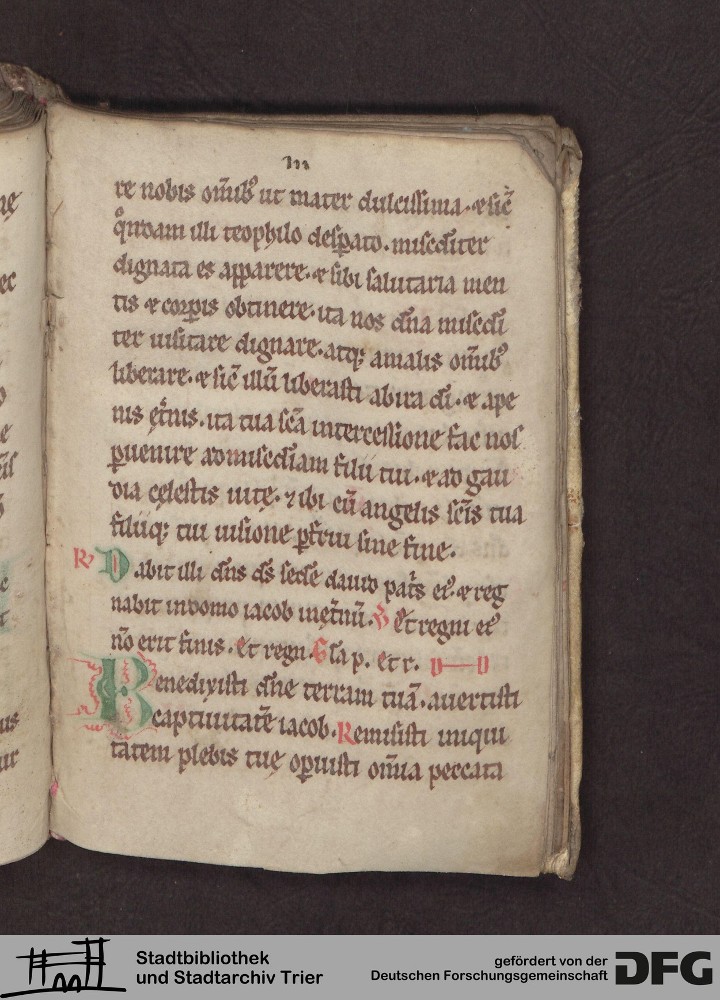 m
re nobis om̄ib᷒ ut mater dulcissima. ⁊ sic̄
q̊ndam illi teophilo desꝑato. misc̄diter
dignata es apparere. ⁊ sibi salutaria men
tis ⁊ corꝑis obtinere. ita nos dn̄a misc̄di
ter uisitare dignare. atq; amalis om̄ib᷒
liberare. ⁊ sic̄ illū liberasti abira di̅. ⁊ ape
nis ęt̄nis. ita tua sc̄a intercessione fac nos
ꝑuenire admisc̄diam filii tui. ⁊ ad gau
dia cęlestis uitę. ⁊ ibi cū angelis sc̄is tua
filiiq; tui uisione ꝑfrui sine fine.
R Dabit illi dn̄s ds̄ sedē dauid pat̄s ei᷒. ⁊ reg
nabit indomo iacob inet̄nū. V Et regni ei᷒
nō erit finis. Et regn. Gl̄a p. et r.
Benedixisti dn̄e terram tuā. auertisti
captiuitatē iacob. Remisisti iniqui
tatem plebis tuę oꝑuisti om̄ia peccata
Stadtbibliothek
und Stadtarchiv Trier
gefördert von der
Deutschen Forschungsgemeinschaft
DFG